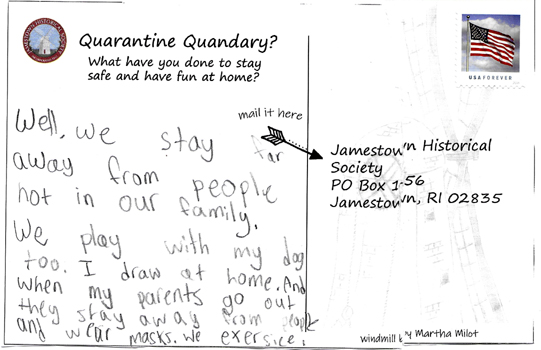 JAMESTOWN HISTORICAL SOCIETY
Quarantine Quandary?
What have you done to stay
safe and have fun at home?
Well, we stay far
away from people
not in our family.
We play with my dog
too. I draw at home. And
when my parents go out
they stay away from people
and wear masks. We exersice.
mail it here
Jamestown Historical
Society
PO Box 156
Jamestown, RI 02835
USA FOREVER
Windmill by Martha Milot